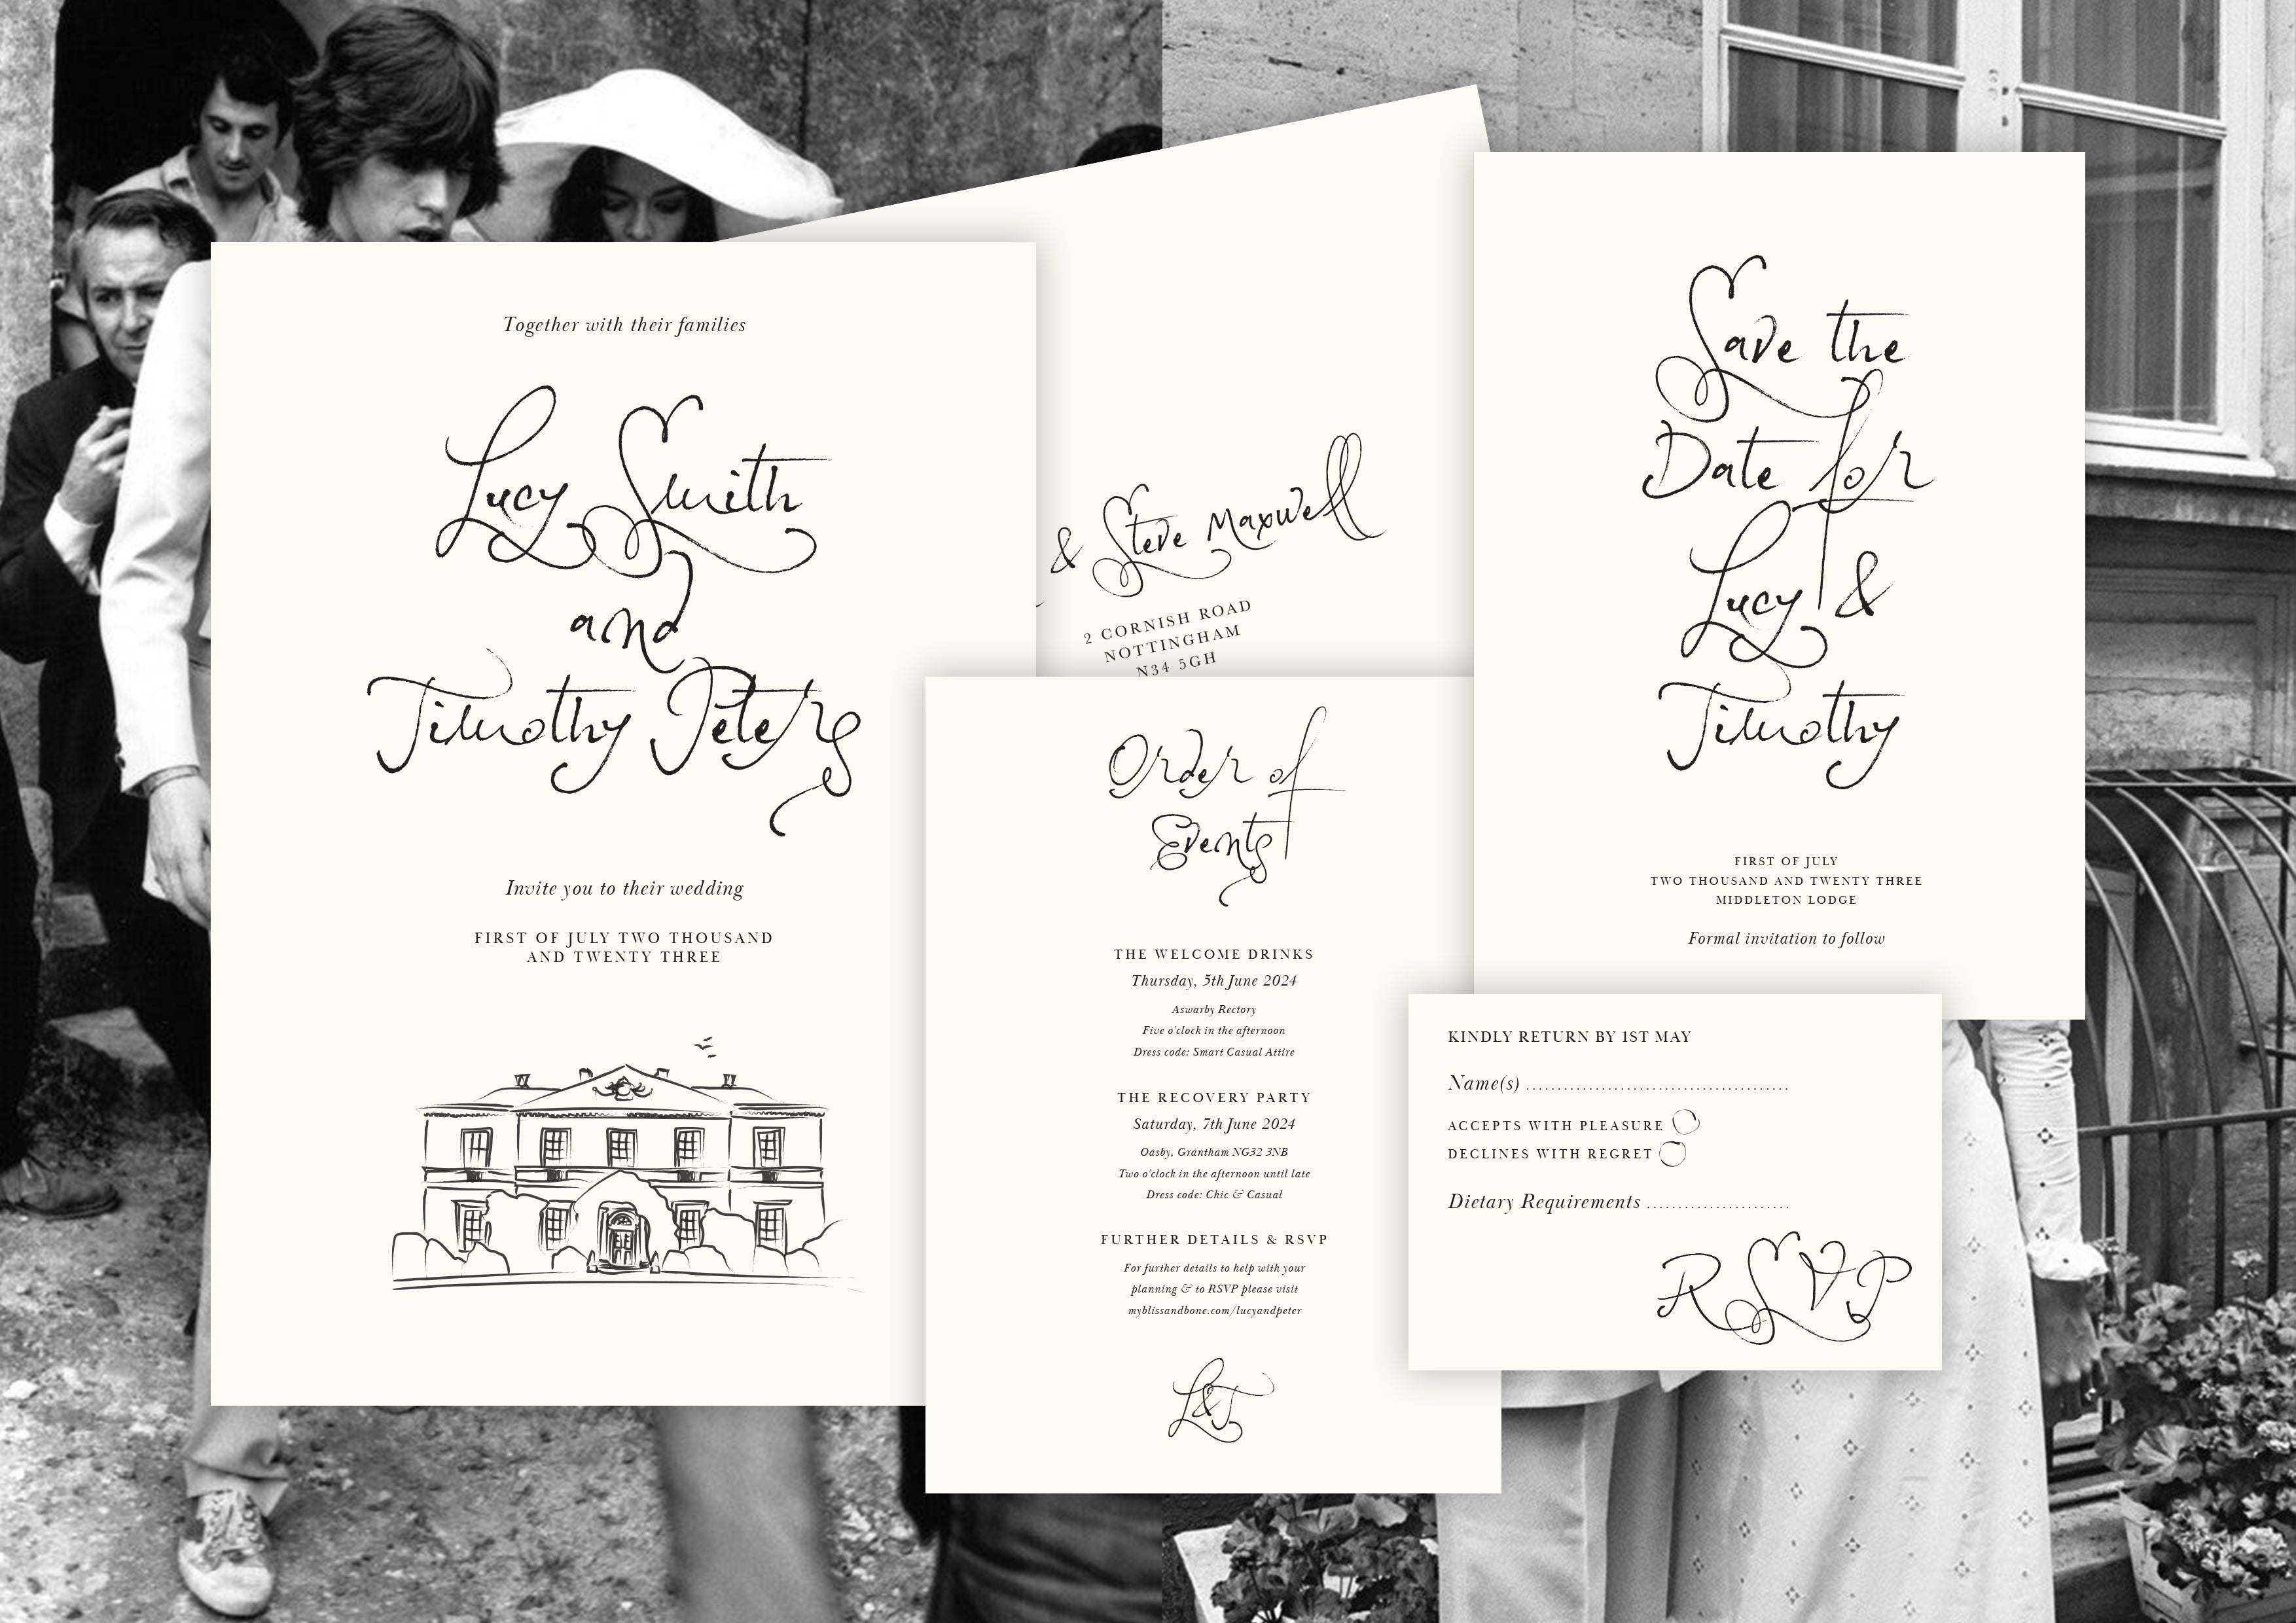 Together with their families
Lucy Smith
and
Timothy Peters
Invite you to their wedding
FIRST OF JULY TWO THOUSAND
AND TWENTY THREE
& Steve Maxwell
2 CORNISH ROAD
NOTTINGHAM
N34 5GH
Order of
Events
THE WELCOME DRINKS
Thursday, 5th June 2024
Aswarby Rectory
Five o'clock in the afternoon
Dress code: Smart Casual Attire
THE RECOVERY PARTY
Saturday, 7th June 2024
Oasby, Grantham NG32 3NB
Two o'clock in the afternoon until late
Dress code: Chic & Casual
FURTHER DETAILS & RSVP
For further details to help with your
planning & to RSVP please visit
myblissandbone.com/lucyandpeter
L&T
Save the
Date for
Lucy &
Timothy
FIRST OF JULY
TWO THOUSAND AND TWENTY THREE
MIDDLETON LODGE
Formal invitation to follow
KINDLY RETURN BY 1ST MAY
Name(s) ..........................................
ACCEPTS WITH PLEASURE
DECLINES WITH REGRET
Dietary Requirements .......................
RSVP